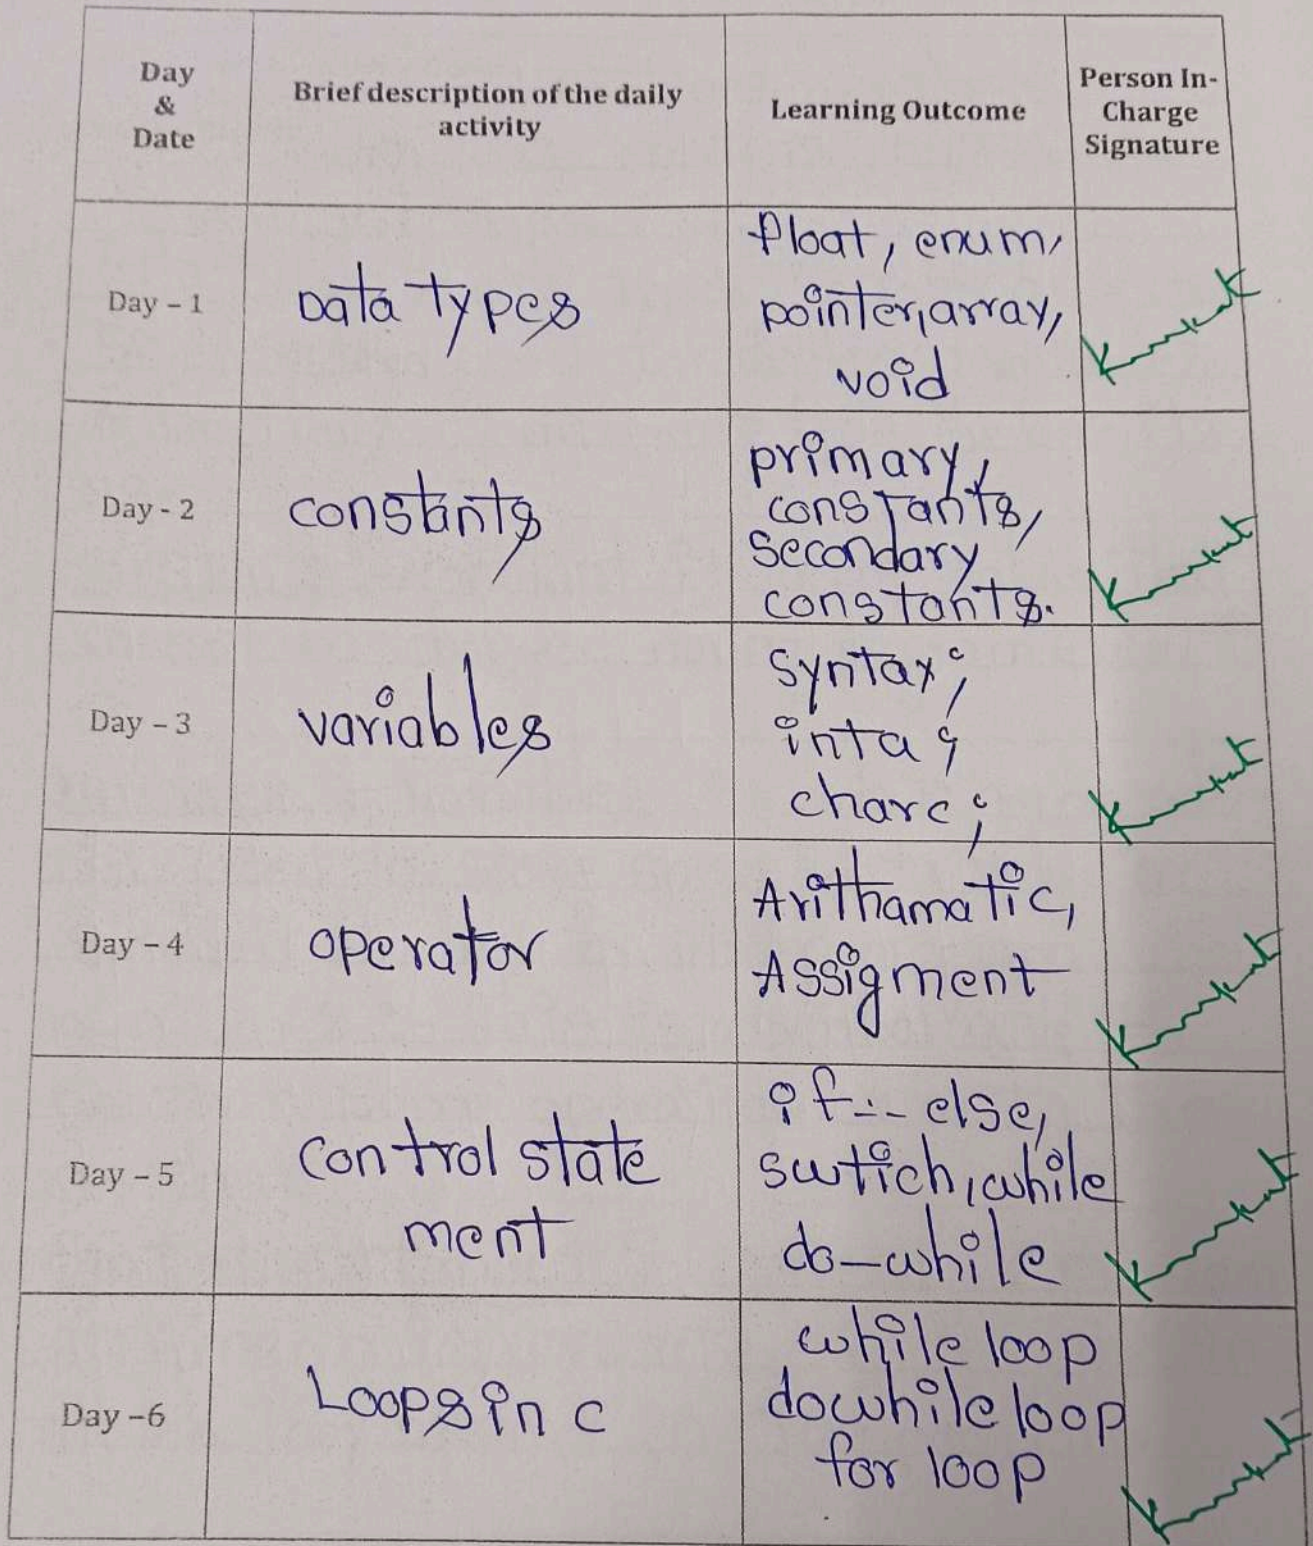 Day
&
Date
Brief description of the daily
activity
Learning Outcome
Person In-
Charge
Signature
Day – 1
Data types
float, enum,
pointer, array,
void
Day - 2
constants
primary,
constants,
secondary
constants.
Day – 3
variables
syntax;
inta;
charc;
Day – 4
operator
Arithamatic,
Assigment
Day – 5
control state
ment
if--- else,
swtich, while
do-while
Day –6
Loops in c
while loop
dowhile loop
for loop